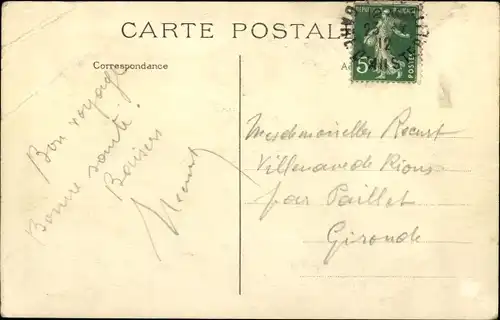 CARTE POSTALE
Correspondance
Bon voyage
Bonne santé.
Baisers
5
POSTES
12
Mesdemoiselles Recurt
Villenave de Rions
par Paillet
Gironde